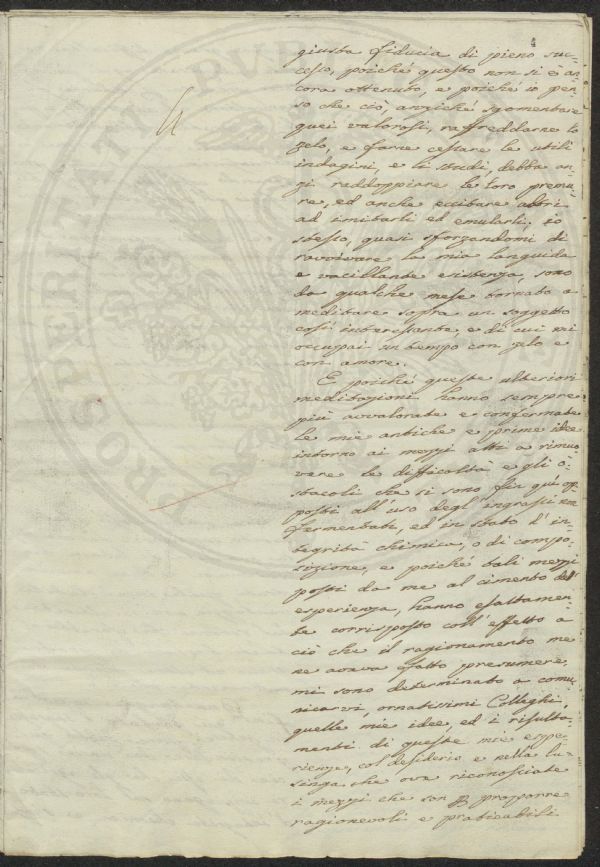 giusta fiducia di pieno suc-
cesso, poiché questo non si è an-
cora ottenuto, e poiché io pen-
so che ciò, anziché sgomentare
quei valorosi, raffreddarne lo
zelo, e farne cessare le utili
indagini, e li studj, debba an-
zi raddoppiare le loro premu-
re, ed anche eccitare altri
ad imitarli ed emularli, io
stesso, quasi sforzandomi di
ravvivare la mia languida
e vacillante esistenza, sono
da qualche mese tornato a
meditare sopra un soggetto
così interessante, e di cui mi
occupai un tempo con zelo e
con amore.
E poiché queste ulteriori
meditazioni hanno sempre
più avvalorate e confermate
le mie antiche e prime idee
intorno ai mezzi atti a rimuo-
vere le difficoltà e gli o-
stacoli che si sono fin qui op-
posti all'uso degl'ingrassi non
fermentati, ed in stato d'in-
tegrità chimica, o di compo-
sizione, e poiché tali mezzi
posti da me al cimento dell'
esperienza, hanno esattamen-
te corrisposto coll'effetto a
ciò che il ragionamento me
ne aveva fatto presumere,
mi sono determinato a comu-
nicarvi, ornatissimi Colleghi,
quelle mie idee, ed i risulta-
menti di queste mie espe-
rienze, col desiderio e nella lu-
singa che ove riconosciate
i mezzi che son p proporre
ragionevoli e praticabili
PROSPERITATI PUB